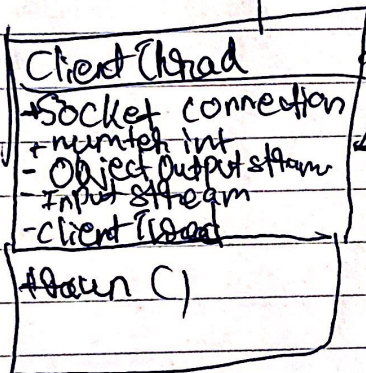 Client Thread
+Socket connection
+ int
- Object Output stream
- Input stream
- client Thread